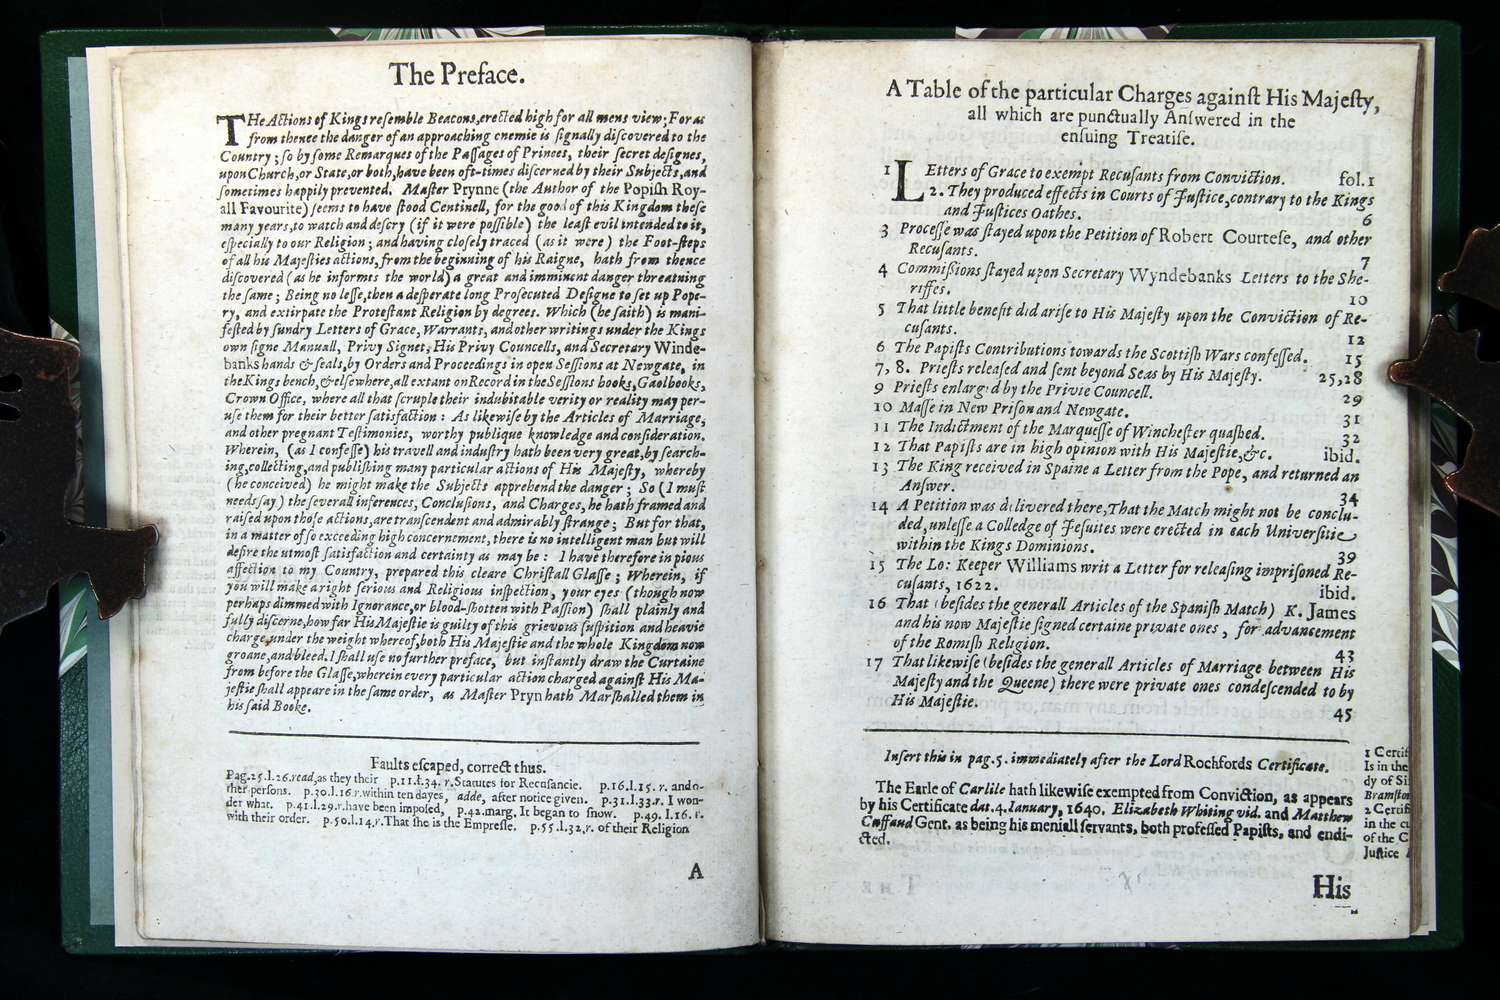 The Preface.
THe Actions of Kings resemble Beacons,erected high for all mens view;For as
from thence the danger of an approaching enemie is signally discovered to the
Country ; so by some Remarques of the Passages of Princes, their secret designes,
upon Church, or State, or both,have been oft-times discerned by their Subjects,and
sometimes happily prevented. Master Prynne (the Author of the Popish Roy-
all Favourite) seems to have stood Centinell, for the good of this Kingdom these
many years,to watch and descry (if it were possible) the least evil intended to it,
especially to our Religion ; and having closely traced (as it were) the Foot-steps
of all his Majesties actions,from the beginning of his Raigne, hath from thence
discovered (as he informes the world) a great and imminent danger threatning
the same ; Being no lesse,then a desperate long Prosecuted Designe to set up Pope-
ry, and extirpate the Protestant Religion by degrees. Which (he saith) is mani-
fested by sundry Letters of Grace, Warrants, and other writings under the Kings
own signe Manuall, Privy Signet, His Privy Councells, and Secretary Winde-
banks hands & seals,by Orders and Proceedings in open Sessions at Newgate, in
the Kings bench,&elsewhere,all extant on Record in the Sessions books,Gaolbooks,
Crown Office, where all that scruple their indubitable verity or reality may per-
use them for their better satisfaction : As likewise by the Articles of Marriage,
and other pregnant Testimonies, worthy publique knowledge and consideration.
Wherein, (as I confesse) his travell and industry hath been very great,by search-
ing,collecting,and publishing many particular actions of His Majesty, whereby
(he conceived) he might make the Subjects apprehend the danger ; So (I must
needs say) the severall inferences, Conclusions, and Charges, he hath framed and
raised upon those actions,are transcendent and admirably strange ; But for that,
in a matter of so exceeding high concernement,there is no intelligent man but will
desire the utmost satisfaction and certainty as may be : I have therefore in pious
affection to my Country, prepared this cleare Christall Glasse ; Wherein, if
you will make a right serious and Religious inspection, your eyes (though now
perhaps dimmed with Ignorance,or blood-shotten with Passion) shall plainly and
fully discerne,how far His Majestie is guilty of this grievous suspition and heavie
charge,under the weight whereof,both His Majestie and the whole Kingdom now
groane,and bleed. I shall use no further preface, but instantly draw the Curtaine
from before the Glasse,wherein every particular action charged against His Ma-
jestie shall appeare in the same order, as Master Pryn hath Marshalled them in
his said Booke.
Faults escaped, correct thus.
Pag.25.l.26.read,as they their p.11.l.34. r.Statutes for Recusancie. p.16.l.15. r. and o-
ther persons. p.30.l.16.r.within ten dayes, adde, after notice given. p.31.l.33.r. I won-
der what. p.41.l.29.r.have been imposed, p.42.marg. It began to snow. p.49. l.16. r.
with their order. p.50.l.14.r.That she is the Empresse. p.55.l.32.r. of their Religion
A
A Table of the particular Charges against His Majesty,
all which are punctually Answered in the
ensuing Treatise.
1 LEtters of Grace to exempt Recusants from Conviction. fol.1
2. They produced effects in Courts of Justice,contrary to the Kings
and Justices Oathes. 6
3 Processe was stayed upon the Petition of Robert Courtese, and other
Recusants. 7
4 Commissions stayed upon Secretary Wyndebanks Letters to the She-
riffes. 10
5 That little benefit did arise to His Majesty upon the Conviction of Re-
cusants. 12
6 The Papists Contributions towards the Scottish Wars confessed. 15
7, 8. Priests released and sent beyond Seas by His Majesty. 25,28
9 Priests enlarged by the Privie Councell. 29
10 Masse in New Prison and Newgate. 31
11 The Indictment of the Marquesse of Winchester quashed. 32
12 That Papists are in high opinion with His Majestie,&c. ibid.
13 The King received in Spaine a Letter from the Pope, and returned an
Answer. 34
14 A Petition was delivered there,That the Match might not be conclu-
ded,unlesse a Colledge of Jesuites were erected in each Universitie
within the Kings Dominions. 39
15 The Lo: Keeper Williams writ a Letter for releasing imprisoned Re-
cusants, 1622. ibid.
16 That (besides the generall Articles of the Spanish Match) K. James
and his now Majestie signed certaine private ones, for advancement
of the Romish Religion. 43
17 That likewise (besides the generall Articles of Marriage between His
Majesty and the Queene) there were private ones condescended to by
His Majestie. 45
Insert this in pag.5. immediately after the Lord Rochfords Certificate.
The Earle of Carlile hath likewise exempted from Conviction, as appears
by his Certificate dat.4.Ianuary, 1640. Elizabeth Whiting vid. and Matthew
Cuffaud Gent. as being his meniall servants, both professed Papists, and endi-
cted.
1 Certif
Is in the
dy of Si
Bramston
2 Certif
in the cu
of the C
Justice
His